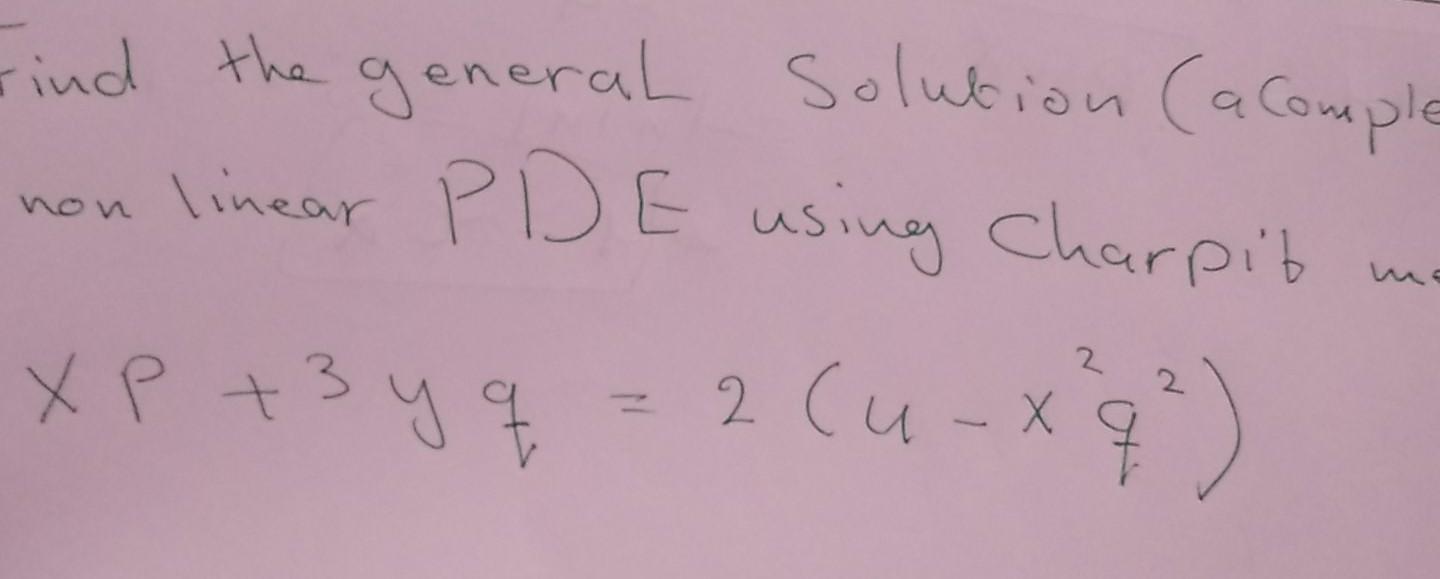 Find the general Solution (a Comple
non linear PDE using Charpit me
xp + 3yq = 2(u - x²q²)